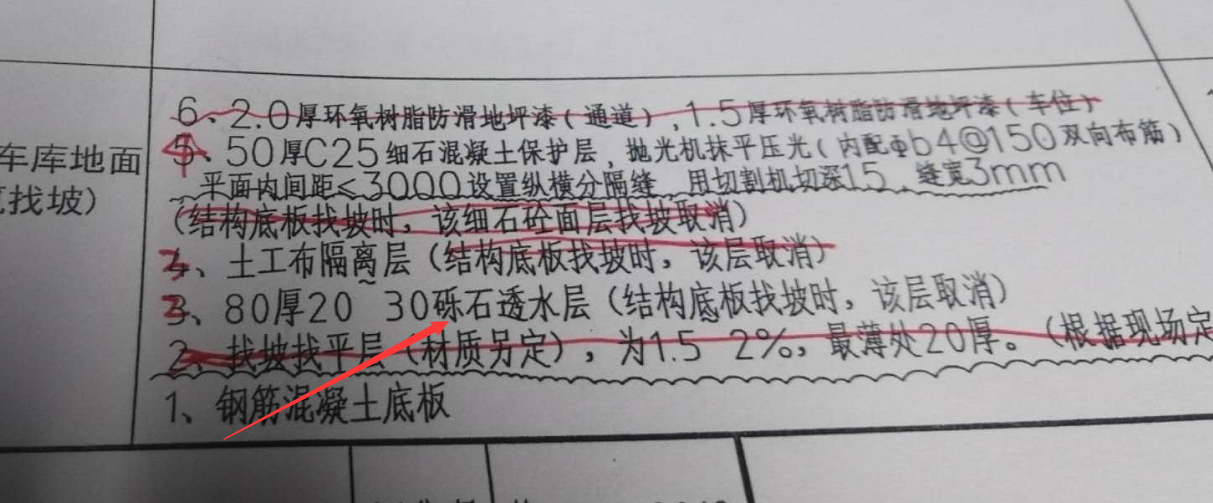 6、2.0厚环氧树脂防滑地坪漆(通道),1.5厚环氧树脂防滑地坪漆(车位)
5、50厚C25细石混凝土保护层,抛光机抹平压光(内配Φb4@150双向布筋)
车库地面
平面内间距≤3000设置纵横分隔缝,用切割机切深15,缝宽3mm
找坡)
(结构底板找坡时,该细石砼面层找坡取消)
4、土工布隔离层(结构底板找坡时,该层取消)
3、80厚20~30砾石透水层(结构底板找坡时,该层取消)
2、找坡找平层(材质另定),为1.5 2%,最薄处20厚。(根据现场定
1、钢筋混凝土底板